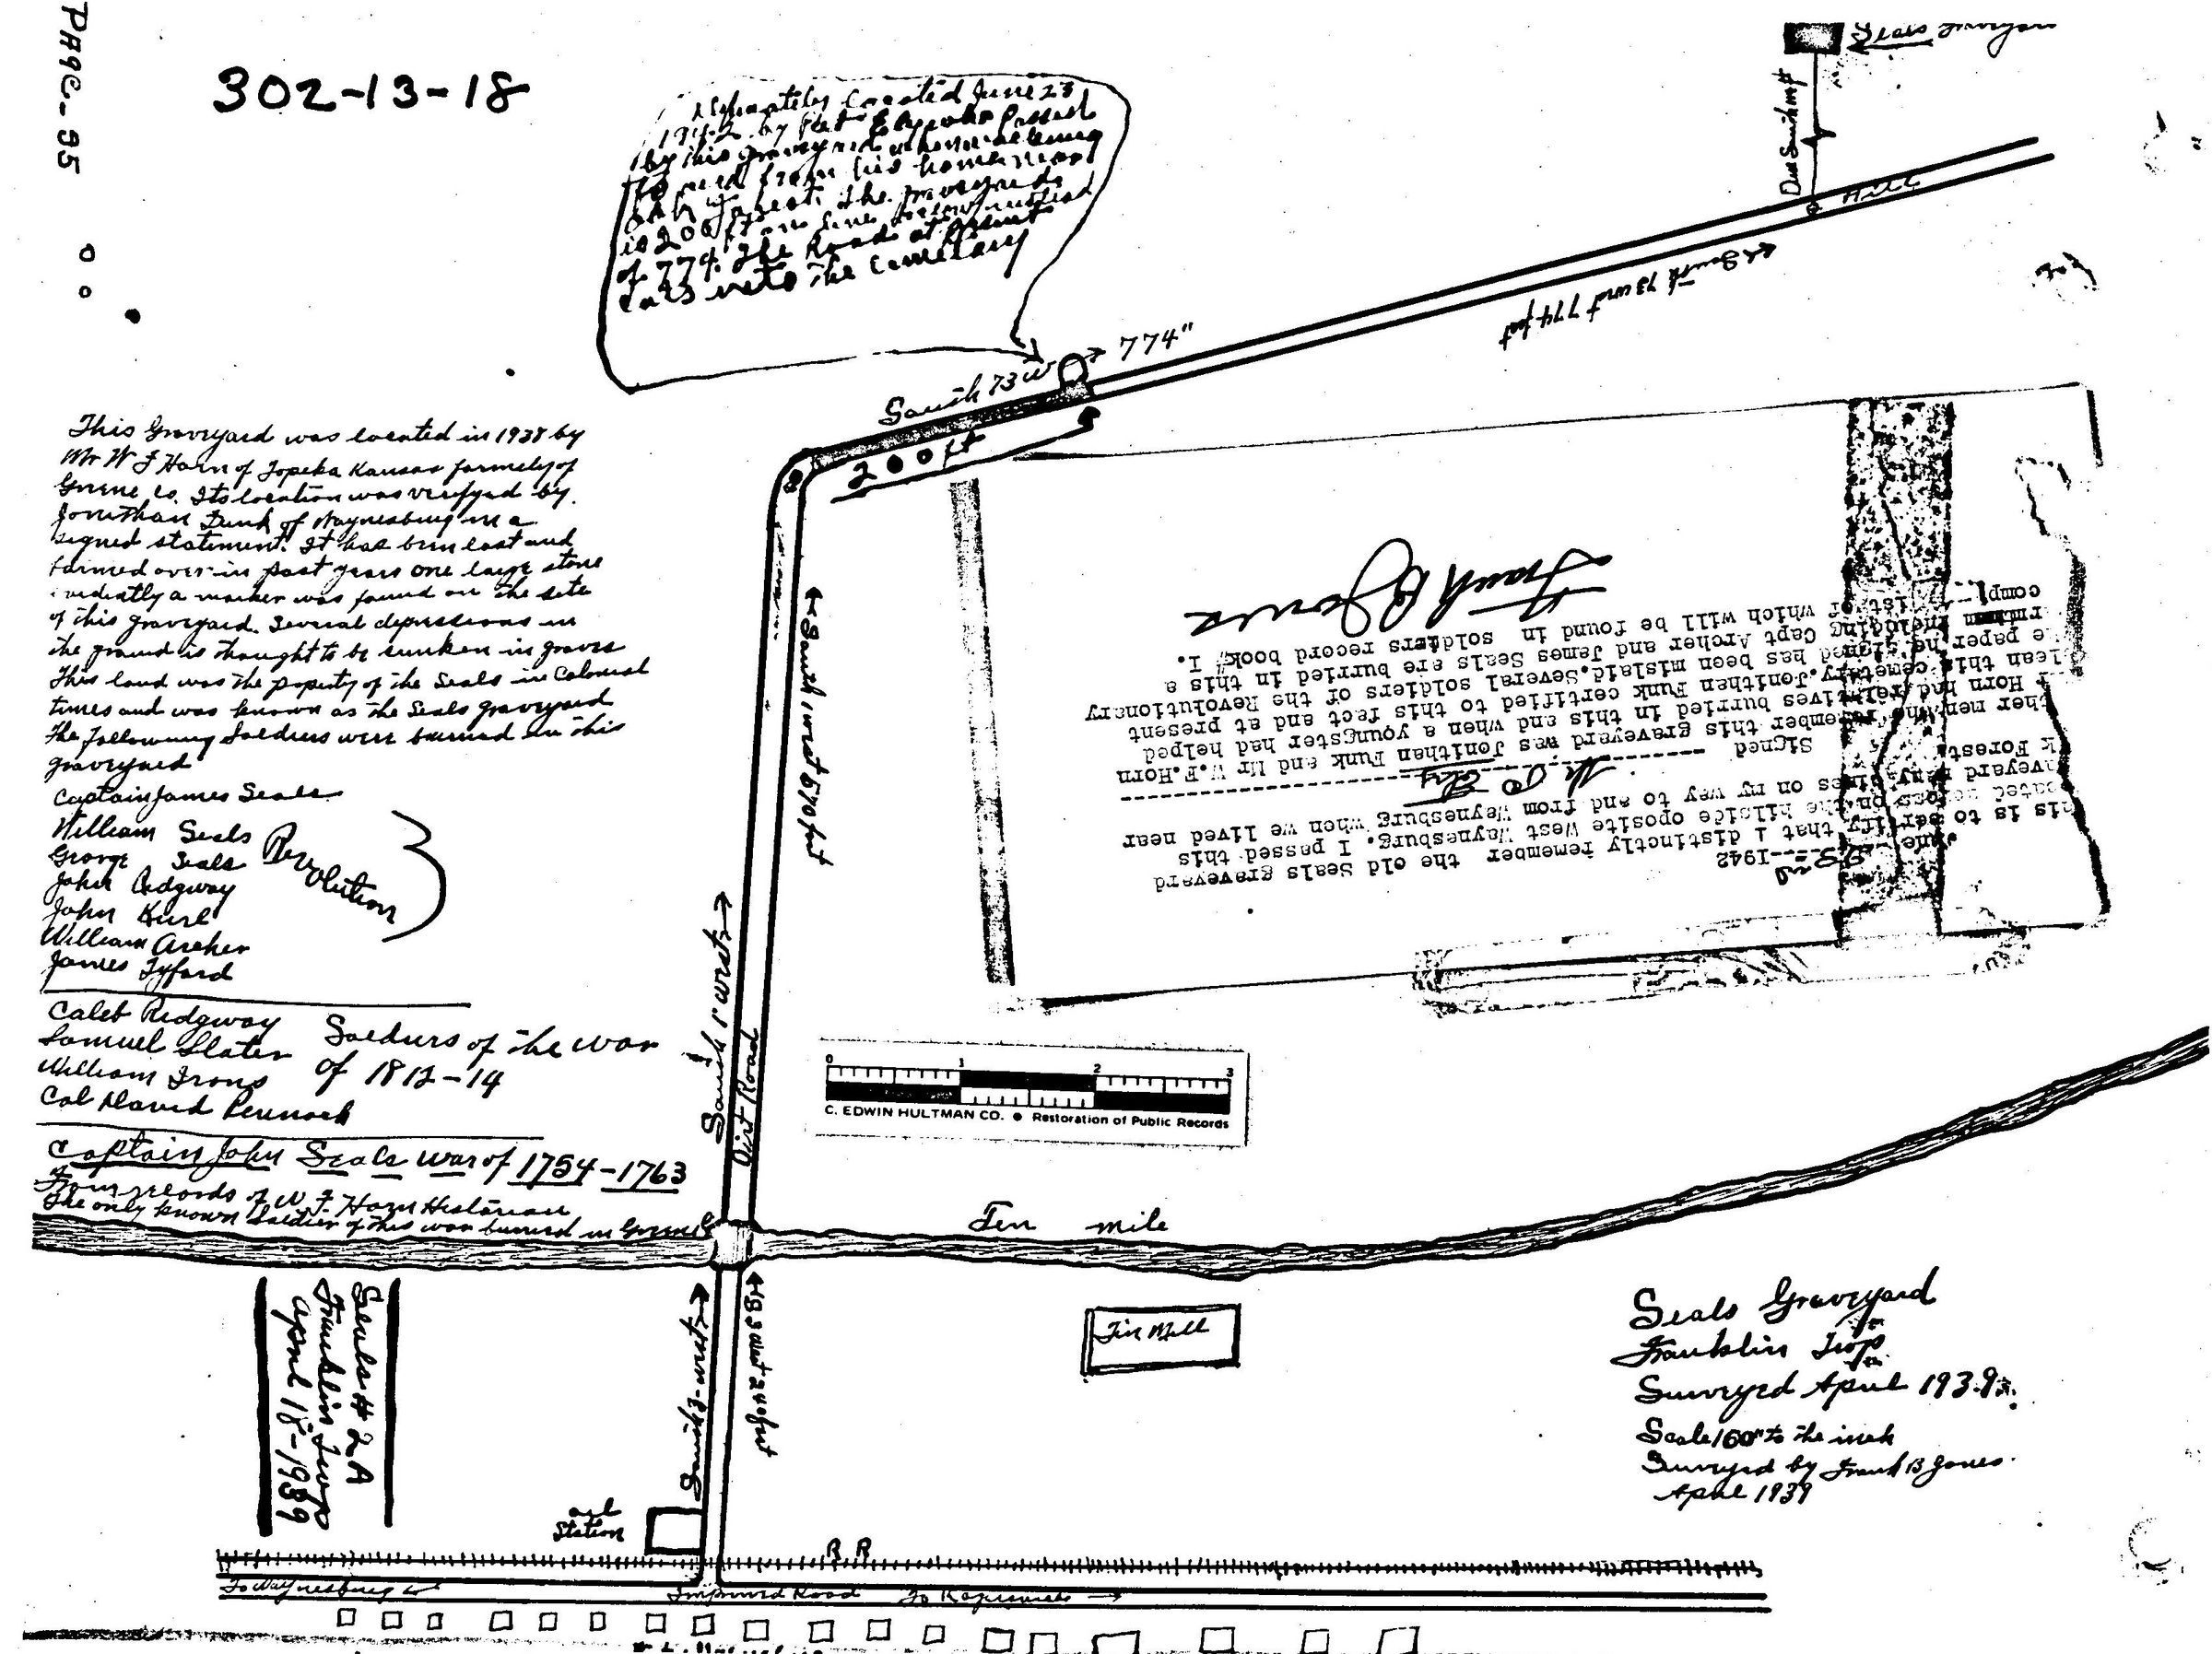 302-13-18
June 23
1942 by
is 200 ft on line
of 774. The Road at present
cuts into the Cemetary
Seals Graveyard
Due South
Hill
South 73 west 774 feet
774"
South 73 W
200 ft
This Graveyard was located in 1938 by
Mr W F Horn of Topeka Kansas formely of
Greene Co. Its location was verifyed by
Jonithan Funk of Waynesburg in a
signed statement. It has been lost and
farmed over in past years one large stone
evidently a marker was found on the site
of this graveyard. Several depressions in
the ground is thought to be sunken in graves
This land was the property of the Seals in Colonial
times and was known as the Seals graveyard
The following Soldiers were burried in this
graveyard
Captain James Seals
William Seals
George Seals
John Ridgway
John
William Archer
James
Revolution
Caleb Ridgway
Samuel Slater
William Irons
Col David Pennock
Soldiers of the war
of 1812-14
Captain John Seals war of 1754-1763
From records of W. F. Horn Historian
The only known Soldier of this war burried in Greene Co
South 1 west 670 feet
South 1 west
Dirt Road
June 23rd 1942
this is to certify that I distinctly remember the old Seals graveyard
located across on the hillside oposite West Waynesburg. I passed this
graveyard many times on my way to and from Waynesburg when we lived near
Oak Forest
Signed
other men who remember this graveyard was Jonithan Funk and Mr W.F.Horn
Mr Horn had relitives burried in this and when a youngster had helped
clean this cemetary. Jonithen Funk certified to this fact and at present
the paper he signed has been mislaid. Several soldiers of the Revolutionary
including Capt Archer and James Seals are burried in this a
list of which will be found in soldiers record book, I.
Frank B Jones
0 1 2 3
C. EDWIN HULTMAN CO. ● Restoration of Public Records
Ten mile
Tin Mill
South 3 west
S 3 West 240 feet
Seals # 2 A
Franklin Twp
April 18-1939
Seals Graveyard
Franklin Twp
Surveyed April 1939
Scale 160" to the inch
Surveyed by Frank B Jones
April 1939
oil
Station
R R
To Waynesburg
Improved Road
To